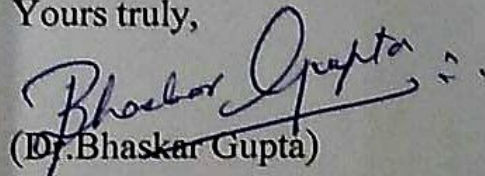 Yours truly,
Bhaskar Gupta
(Dr.Bhaskar Gupta)